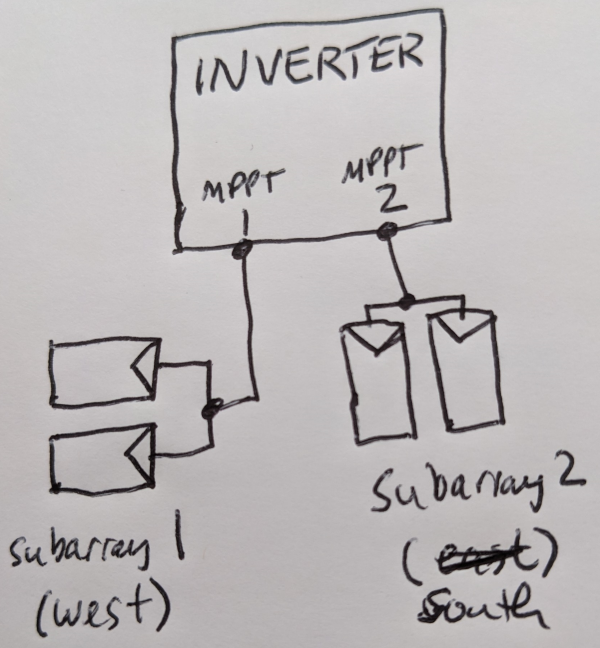 INVERTER
MPPT
1
MPPT
2
subarray 1
(west)
Subarray 2
(east)
South